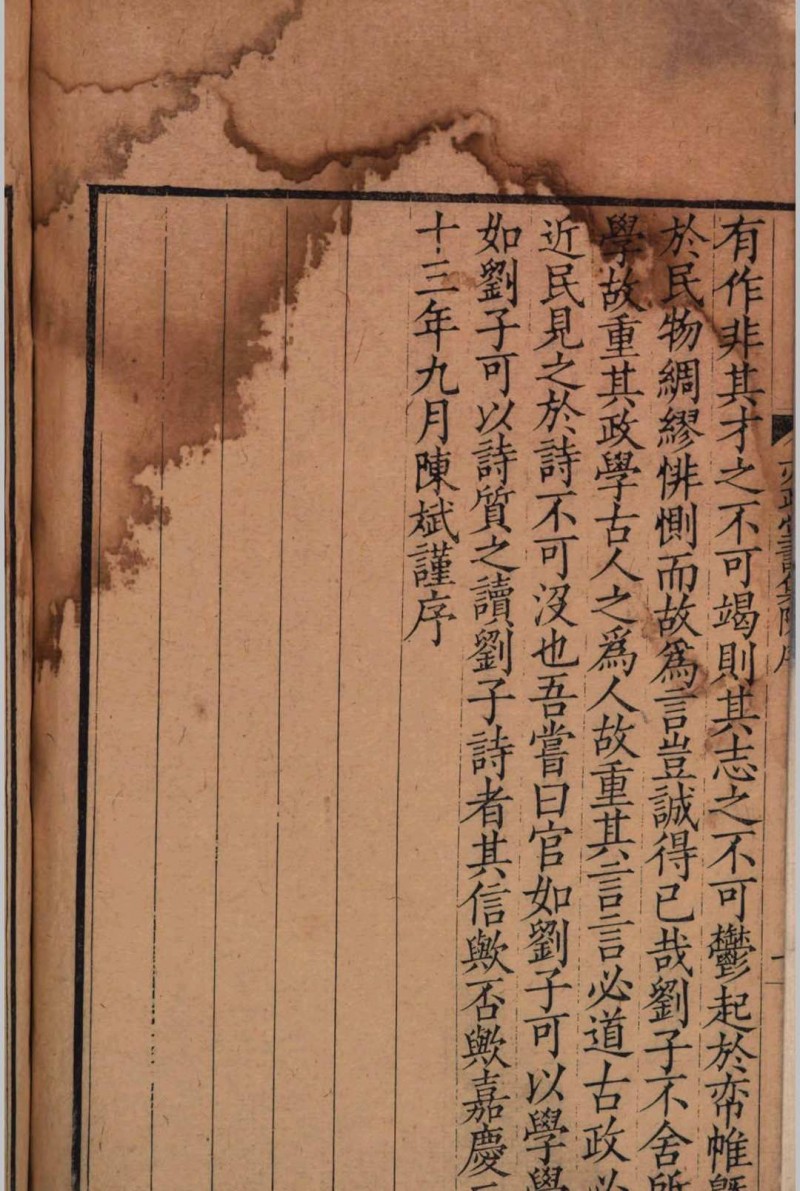 有作非其才之不可竭則其志之不可鬱起於帟帷
於民物綢繆悱惻而故爲言豈誠得已哉劉子不舍所
學故重其政學古人之爲人故重其言言必道古政必
近民見之於詩不可沒也吾嘗曰官如劉子可以學學
如劉子可以詩質之讀劉子詩者其信歟否歟嘉慶
十三年九月陳斌謹序